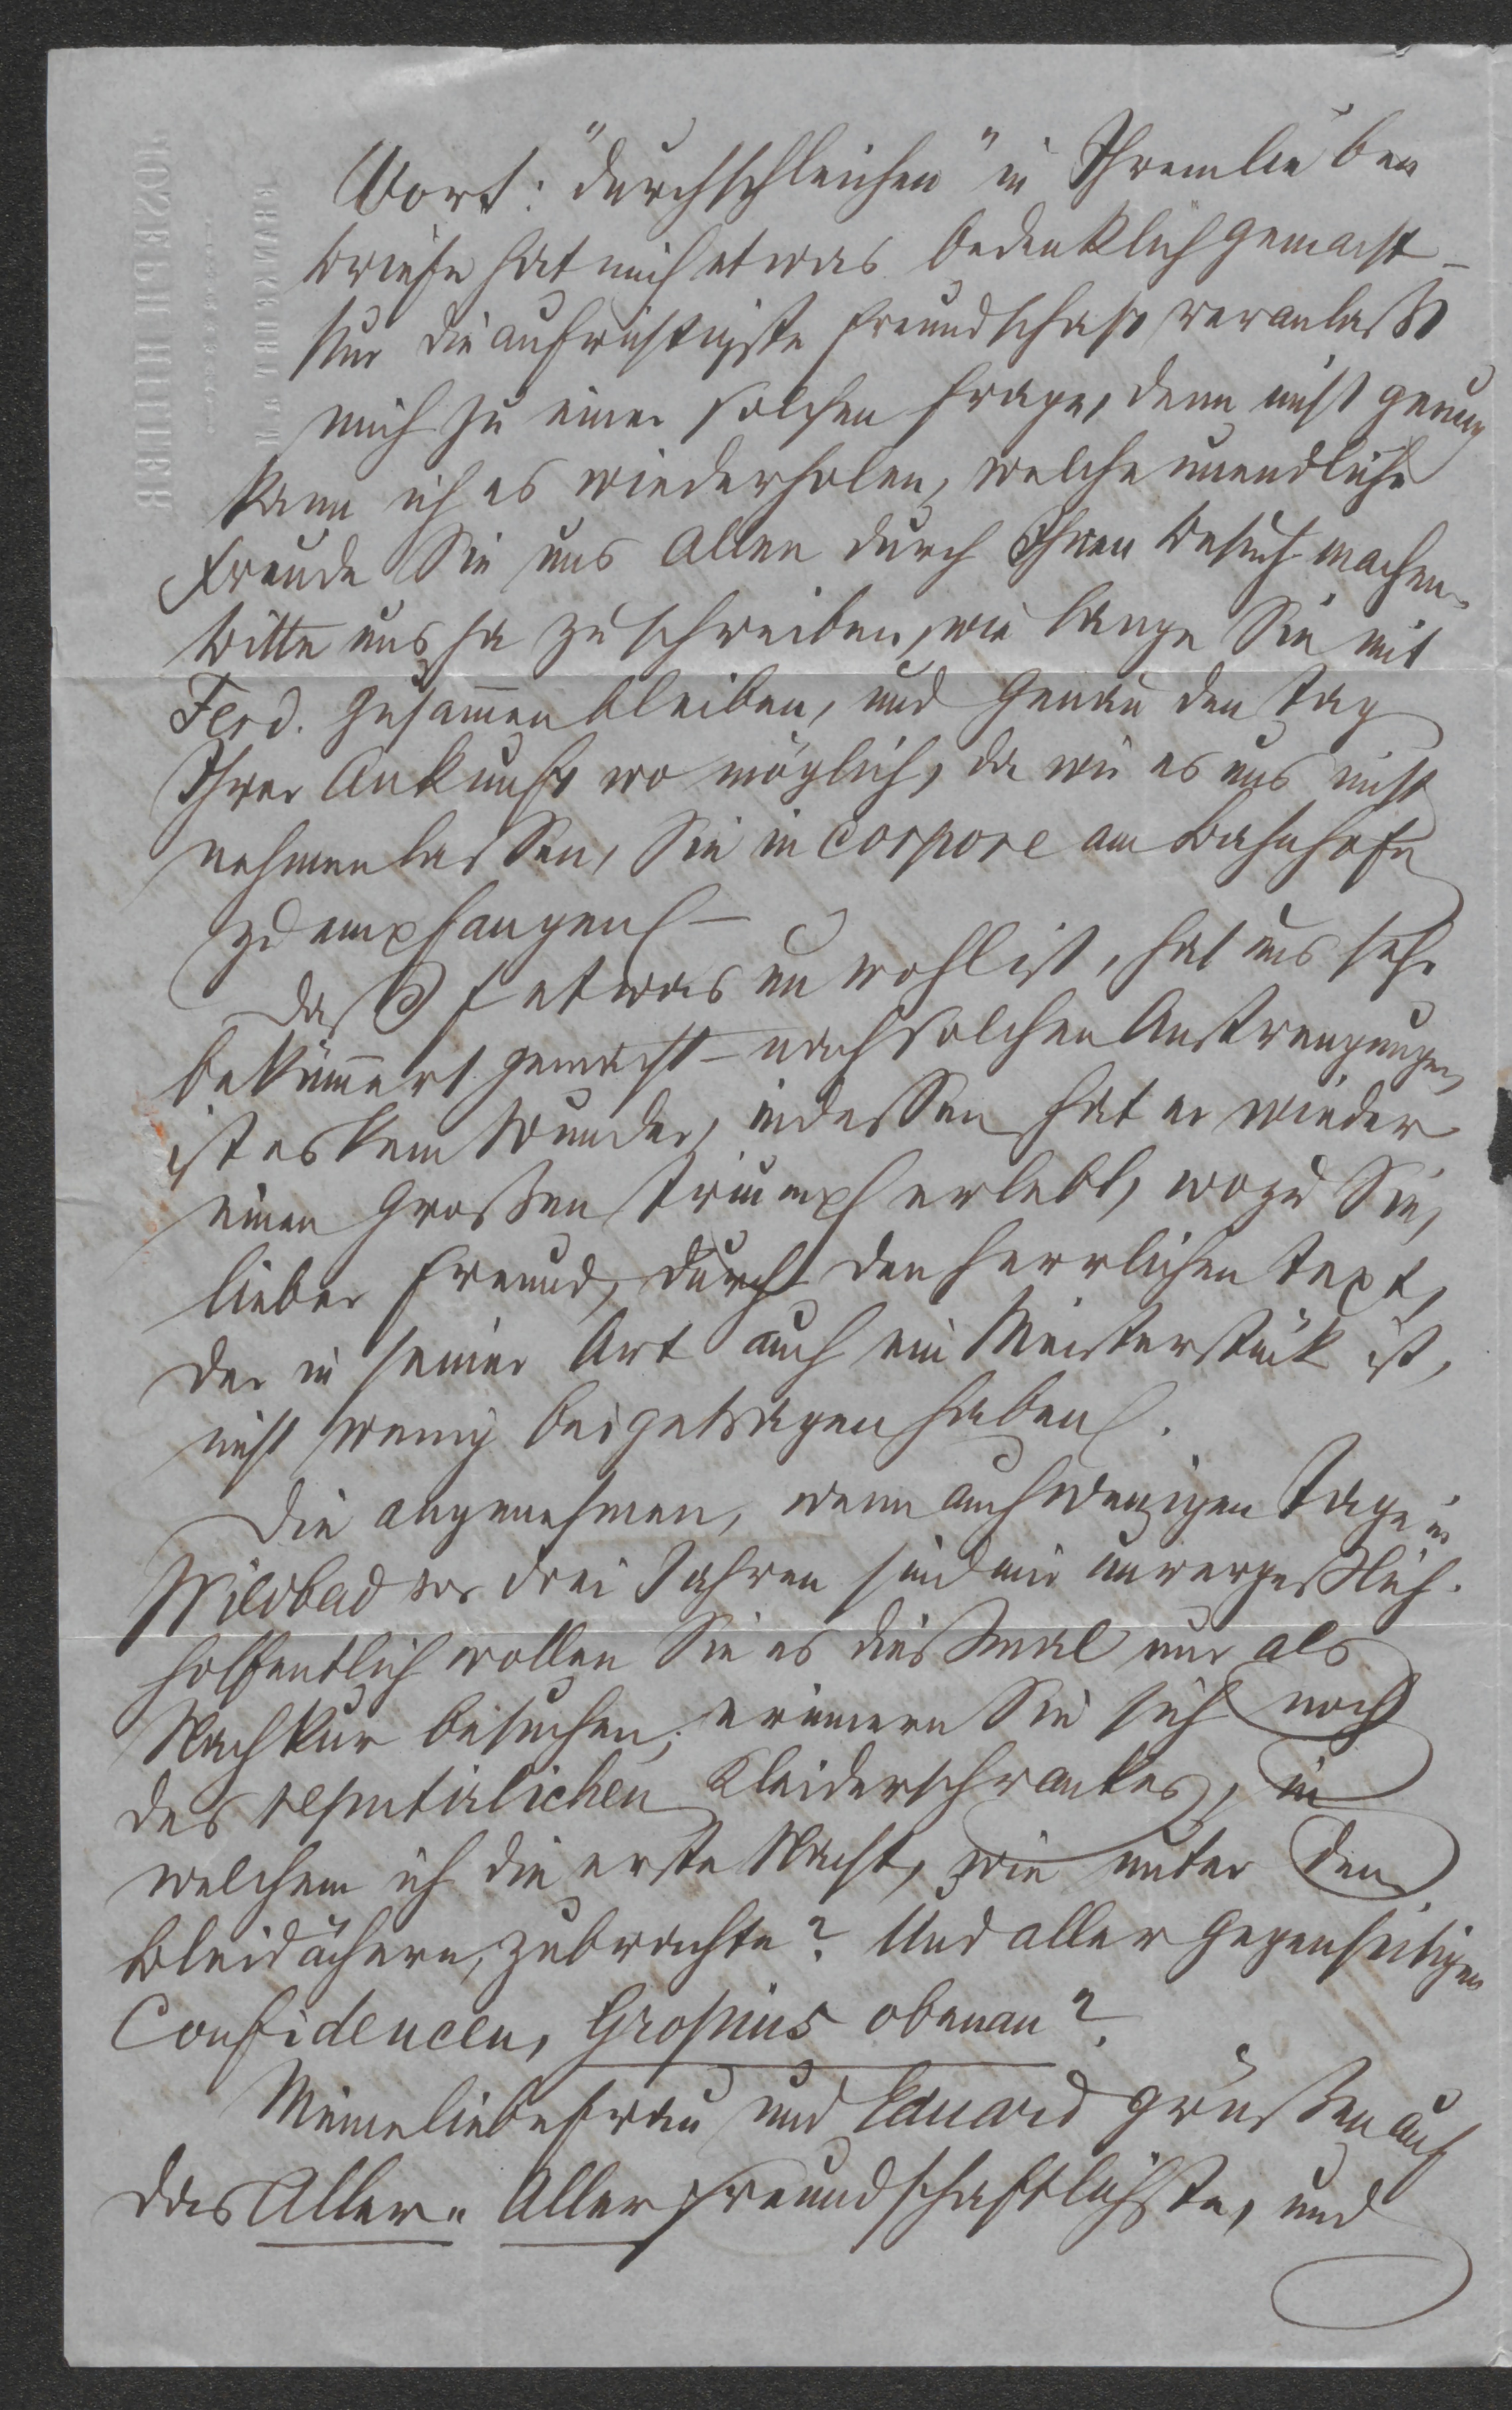 Wort: "durchschleichen" in Ihrem lieben
Briefe hat mich etwas bedenklich gemacht –
Nur die aufrichtigste Freundschaft veranlaßt
mich zu einer solchen Frage, denn nicht genug
kann ich es wiederholen, welche unendliche
Freude Sie uns Allen durch Ihren Besuch machen.
Bitte uns ja zu schreiben, wie lange Sie mit
Ferd. zusam̄en bleiben, und genau den Tag
Ihrer Ankunft wo möglich, da wir es uns nicht
nehmen lassen, Sie in corpore am Bahnhofe
zu empfangen –
Daß F etwas unwohl ist, hat uns sehr
beküm̄ert gemacht – nach solchen Anstrengungen
ist es kein Wunder, indessen hat er wieder
einen großen Triumph erlebt, wozu Sie,
lieber Freund, durch den herrlichen Text,
der in seiner Art auch ein Meisterstück ist,
nicht wenig beigetragen haben.
Die angenehmen, wenn auch wenigen Tage in
Wildbad vor drei Jahren sind mir unvergeßlich.
Hoffentlich wollen Sie es dießmal nur als
Nachkur besuchen; erinnern Sie sich noch
des reputirlichen Kleiderschrankes, in
welchem ich die erste Nacht, wie unter den
Bleidächern, zubrachte? Und aller gegenseitigen
Confidencen, Gropius obenan?
Meine liebe Frau und Eduard grüßen auf
das Aller- Allerfreundschaftlichste, und